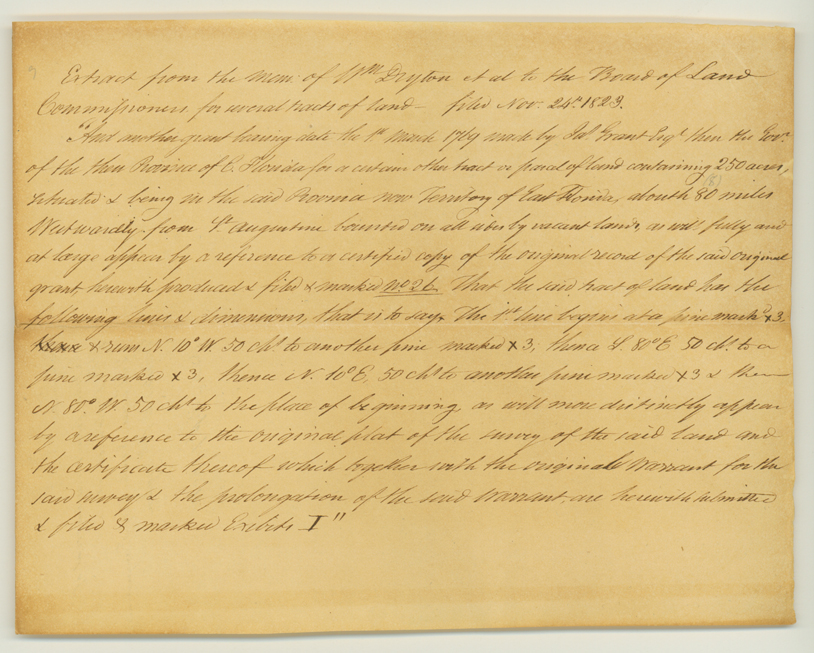 Extract from the Mem: of Wm Dryton et al to the Board of Land
Commissioners for several tracts of land — filed Nov: 24th 1823.
"And another grant bearing date the 1st March 1769 made by Jas Grant Esqr then the Govr
of the then Province of E. Florida for a certain other tract or parcel of land containing 250 acres,
situated & being in the said Province now Territory of East Florida, about 80 miles
(8)
Westwardly from St Augustine bounded on all sides by vacant lands, as will fully and
at large appear by a reference to a certified copy of the original record of the said original
grant herewith produced & filed & marked No 26. That the said tract of land has the
following lines & dimensions, that is to say, The 1st line begins at a pine markd x 3.
& runs N. 10° W. 50 chs to another pine marked x 3; thence S. 80° E 50 chs to a
pine marked x 3, thence N. 10° E, 50 chs to another pine marked x 3 & then
N. 80° W. 50 chs to the place of beginning as will more distinctly appear
by a reference to the original plat of the survey of the said land and
the certificate thereof which together with the original Warrant for the
said survey & the prolongation of the said Warrant, are herewith submitted
& filed & marked Exibits I"